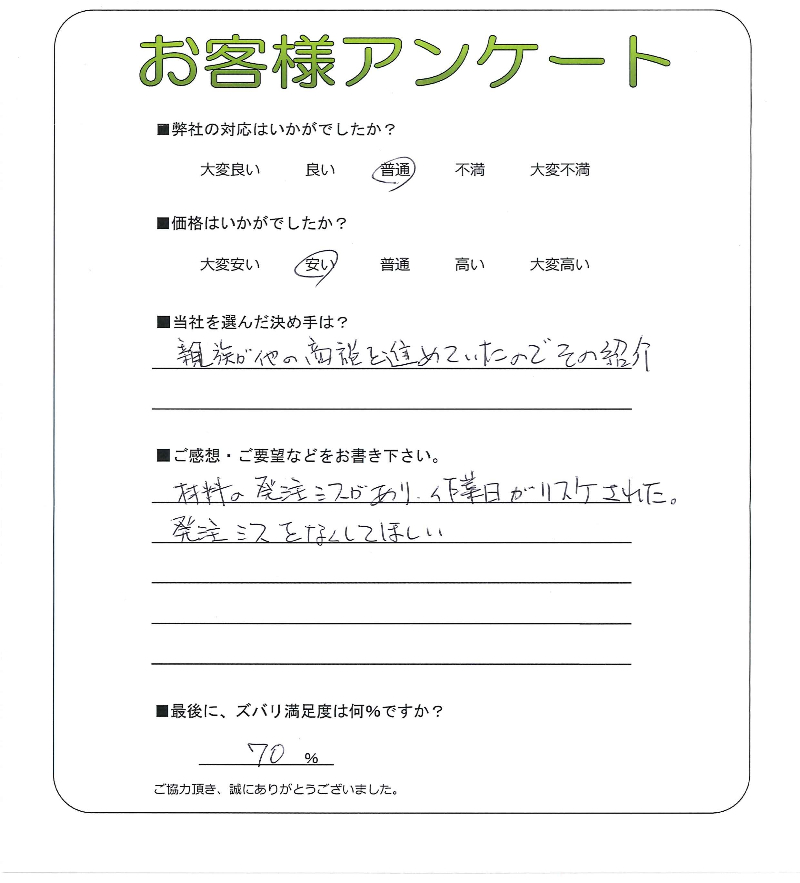 お客様アンケート
■弊社の対応はいかがでしたか？
大変良い 良い 普通 不満 大変不満
■価格はいかがでしたか？
大変安い 安い 普通 高い 大変高い
■当社を選んだ決め手は？
親族が他の商談を進めていたのでその紹介
■ご感想・ご要望などをお書き下さい。
材料の発注ミスがあり、作業日がリスケされた。
発注ミスをなくしてほしい
■最後に、ズバリ満足度は何%ですか？
70 %
ご協力頂き、誠にありがとうございました。